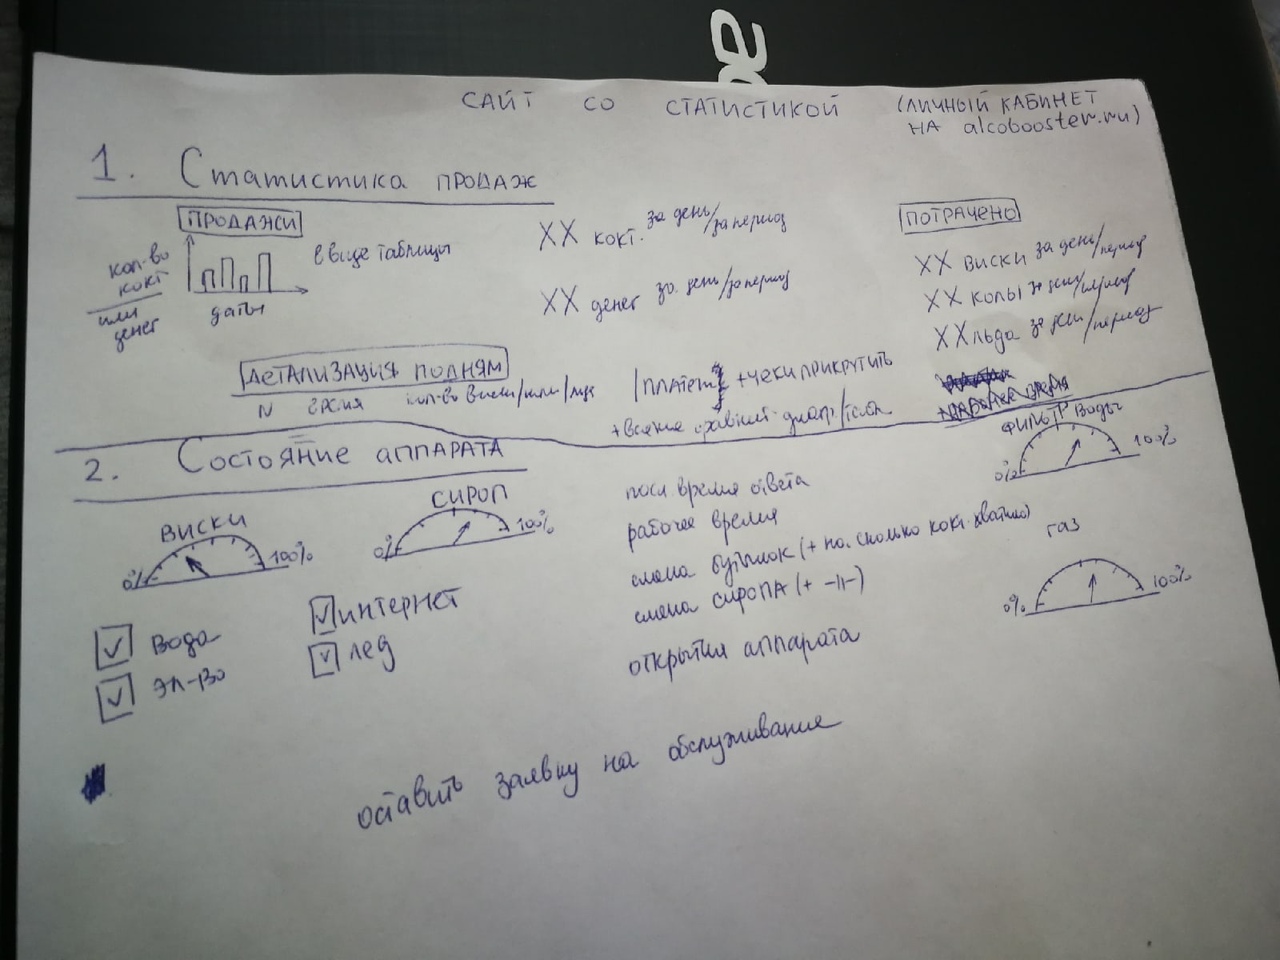 САЙТ СО СТАТИСТИКОЙ (ЛИЧНЫЙ КАБИНЕТ
НА alcobooster.ru)
1. Статистика ПРОДАЖ
ПРОДАЖИ
кол-во
кокт
или
денег
даты
в виде таблицы
XX кокт. за день/за период
XX денег за день/за период
ПОТРАЧЕНО
XX виски за день/период
XX колы за день/период
XX льда за день/период
ДЕТАЛИЗАЦИЯ ПО ДНЯМ
N время кол-во виски/или/
/ПЛАТЕЖ +ЧЕКИ ПРИКРУТИТЬ
+всякие
2. Состояние аппарата
ВИСКИ
0% 100%
СИРОП
0% 100%
ФИЛЬТР ВОДЫ
0% 100%
газ
0% 100%
Вода
ЭЛ-ВО
интернет
лед
посл. время ответа
рабочее время
смена бутылок (+ на сколько кокт. хватило)
смена сиропа (+ -11-)
открытия аппарата
оставить заявку на обслуживание